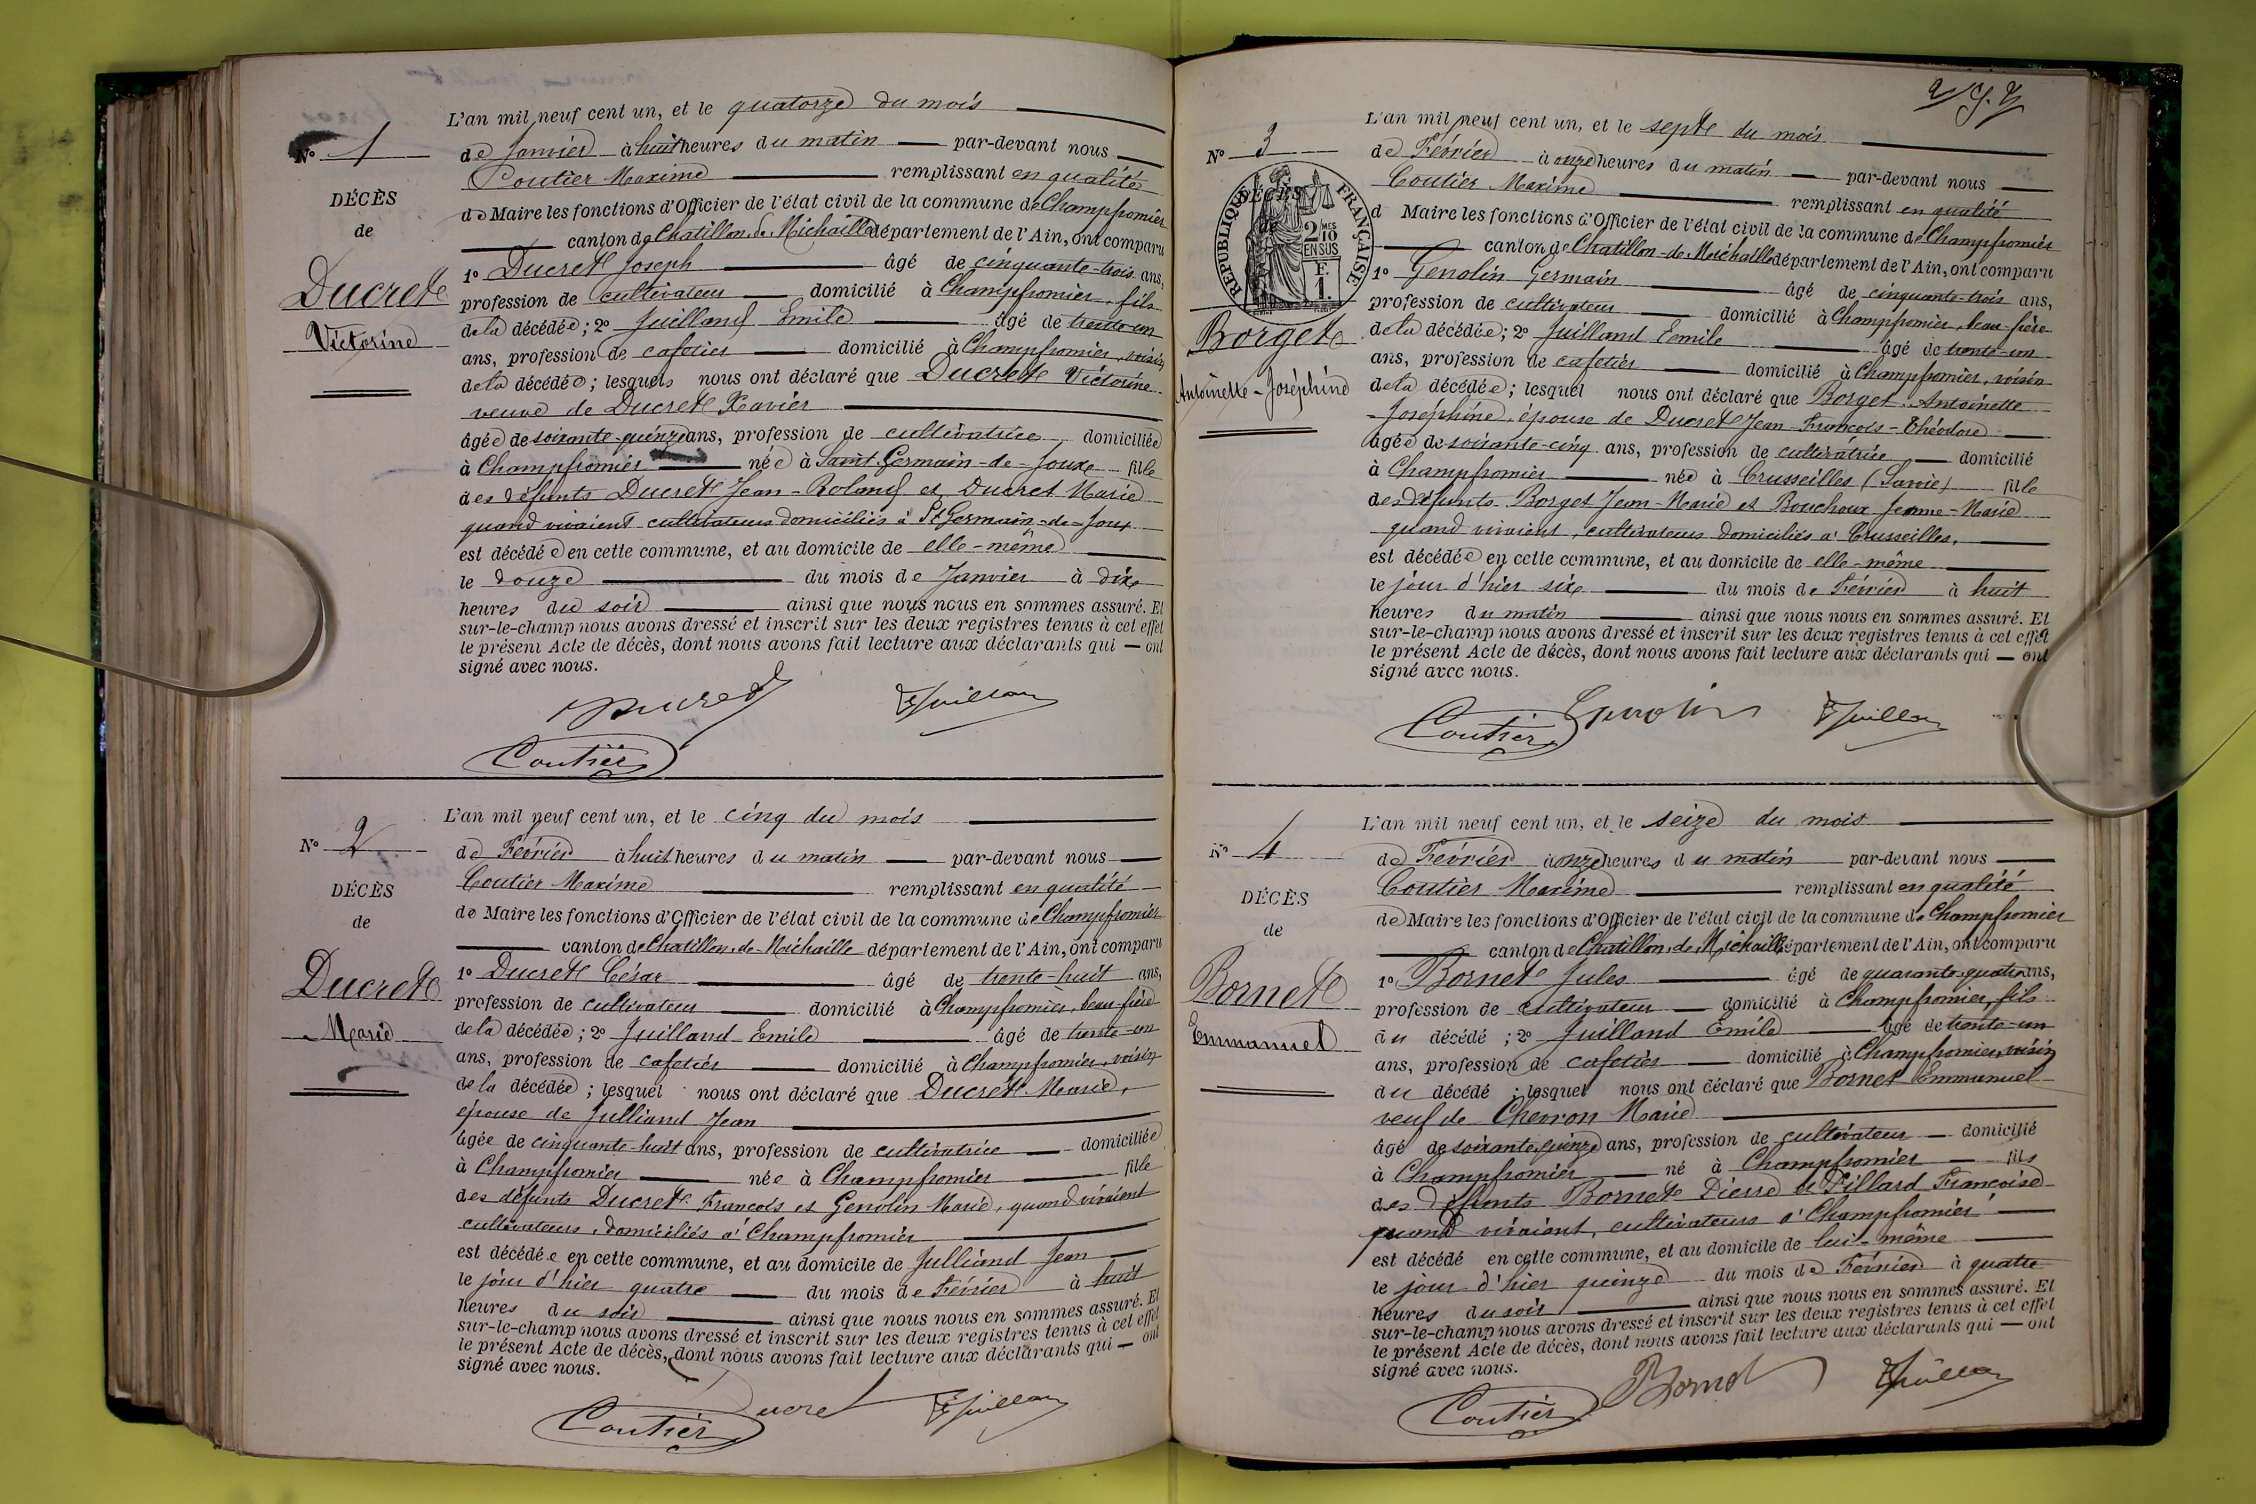 L'an mil neuf cent un, et le quatorze du mois
N° 1
de Janvier à huit heures du matin par-devant nous
Coutier Maxime remplissant en qualité
DÉCÈS
de Maire les fonctions d'Officier de l'état civil de la commune de Champfromier
de
canton de Chatillon-de-Michaille département de l'Ain, ont comparu
1° Ducret Joseph âgé de cinquante-trois ans,
Ducret
profession de cultivateur domicilié à Champfromier, fils
Victorine
de la décédée; 2° Juilland Emile âgé de trente-un
ans, profession de cafetier domicilié à Champfromier, voisin
de la décédée; lesquels nous ont déclaré que Ducret Victorine
veuve de Ducret Xavier
âgée de soixante-quinze ans, profession de cultivatrice domiciliée
à Champfromier née à Saint-Germain-de-Joux fille
des défunts Ducret Jean-Roland et Ducret Marie
quand vivaient cultivateurs domiciliés à St Germain-de-Joux
est décédée en cette commune, et au domicile de elle-même
le douze du mois de Janvier à dix
heures du soir ainsi que nous nous en sommes assuré. Et
sur-le-champ nous avons dressé et inscrit sur les deux registres tenus à cet effet
le présent Acte de décès, dont nous avons fait lecture aux déclarants qui ont
signé avec nous.
Ducret EJuilland
Coutier
L'an mil neuf cent un, et le cinq du mois
N° 2
de Février à huit heures du matin par-devant nous
Coutier Maxime remplissant en qualité
DÉCÈS
de Maire les fonctions d'Officier de l'état civil de la commune de Champfromier
de
canton de Chatillon-de-Michaille département de l'Ain, ont comparu
Ducret
1° Ducret César âgé de trente-huit ans,
profession de cultivateur domicilié à Champfromier, beau-frère
Marie
de la décédée; 2° Juilland Emile âgé de trente-un
ans, profession de cafetier domicilié à Champfromier, voisin
de la décédée; lesquel nous ont déclaré que Ducret Marie,
épouse de Julliand Jean
âgée de cinquante-huit ans, profession de cultivatrice domiciliée
à Champfromier née à Champfromier fille
des défunts Ducret François et Genolin Marie, quand vivaient
cultivateurs, domiciliés à Champfromier
est décédée en cette commune, et au domicile de Julliand Jean
le jour d'hier quatre du mois de Février à huit
heures du soir ainsi que nous nous en sommes assuré. Et
sur-le-champ nous avons dressé et inscrit sur les deux registres tenus à cet effet
le présent Acte de décès, dont nous avons fait lecture aux déclarants qui ont
signé avec nous.
Ducret EJuilland
Coutier
L'an mil neuf cent un, et le sept du mois
N° 3
de Février à onze heures du matin par-devant nous
Coutier Maxime remplissant en qualité
DÉCÈS
de
RÉPUBLIQUE FRANÇAISE
2/10MES
EN SUS
F.
1.
d Maire les fonctions d'Officier de l'état civil de la commune de Champfromier
canton de Chatillon-de-Michaille département de l'Ain, ont comparu
1° Genolin Germain âgé de cinquante-trois ans,
profession de cultivateur domicilié à Champfromier, beau-frère
Borget
de la décédée; 2° Juilland Emile âgé de trente-un
ans, profession de cafetier domicilié à Champfromier, voisin
Antoinette-Joséphine
de la décédée; lesquel nous ont déclaré que Borget Antoinette
Joséphine, épouse de Ducret Jean-François-Théodore
âgée de soixante-cinq ans, profession de cultivatrice domicilié
à Champfromier née à Crusseilles (Savoie) fille
des défunts Borget Jean-Marie et Bouchoux Jeanne-Marie
quand vivaient, cultivateurs domiciliés à Crusseilles,
est décédée en cette commune, et au domicile de elle-même
le jour d'hier six du mois de Février à huit
heures du matin ainsi que nous nous en sommes assuré. Et
sur-le-champ nous avons dressé et inscrit sur les deux registres tenus à cet effet
le présent Acte de décès, dont nous avons fait lecture aux déclarants qui ont
signé avec nous.
Coutier Genolin EJuilland
L'an mil neuf cent un, et le seize du mois
N° 4
de Février à onze heures du matin par-devant nous
Coutier Maxime remplissant en qualité
DÉCÈS
de Maire les fonctions d'Officier de l'état civil de la commune de Champfromier
de
canton de Chatillon-de-Michaille département de l'Ain, ont comparu
Bornet
1° Bornet Jules âgé de quarante-quatre ans,
profession de cultivateur domicilié à Champfromier, fils
Emmanuel
du décédé; 2° Juilland Emile âgé de trente-un
ans, profession de cafetier domicilié à Champfromier, voisin
du décédé; lesquel nous ont déclaré que Bornet Emmanuel
veuf de Chevron Marie
âgé de soixante-quinze ans, profession de cultivateur domicilié
à Champfromier né à Champfromier fils
des défunts Bornet Pierre et Pillard Françoise
quand vivaient, cultivateurs à Champfromier
est décédé en cette commune, et au domicile de lui-même
le jour d'hier quinze du mois de Février à quatre
heures du soir ainsi que nous nous en sommes assuré. Et
sur-le-champ nous avons dressé et inscrit sur les deux registres tenus à cet effet
le présent Acte de décès, dont nous avons fait lecture aux déclarants qui ont
signé avec nous.
Coutier Bornet EJuilland